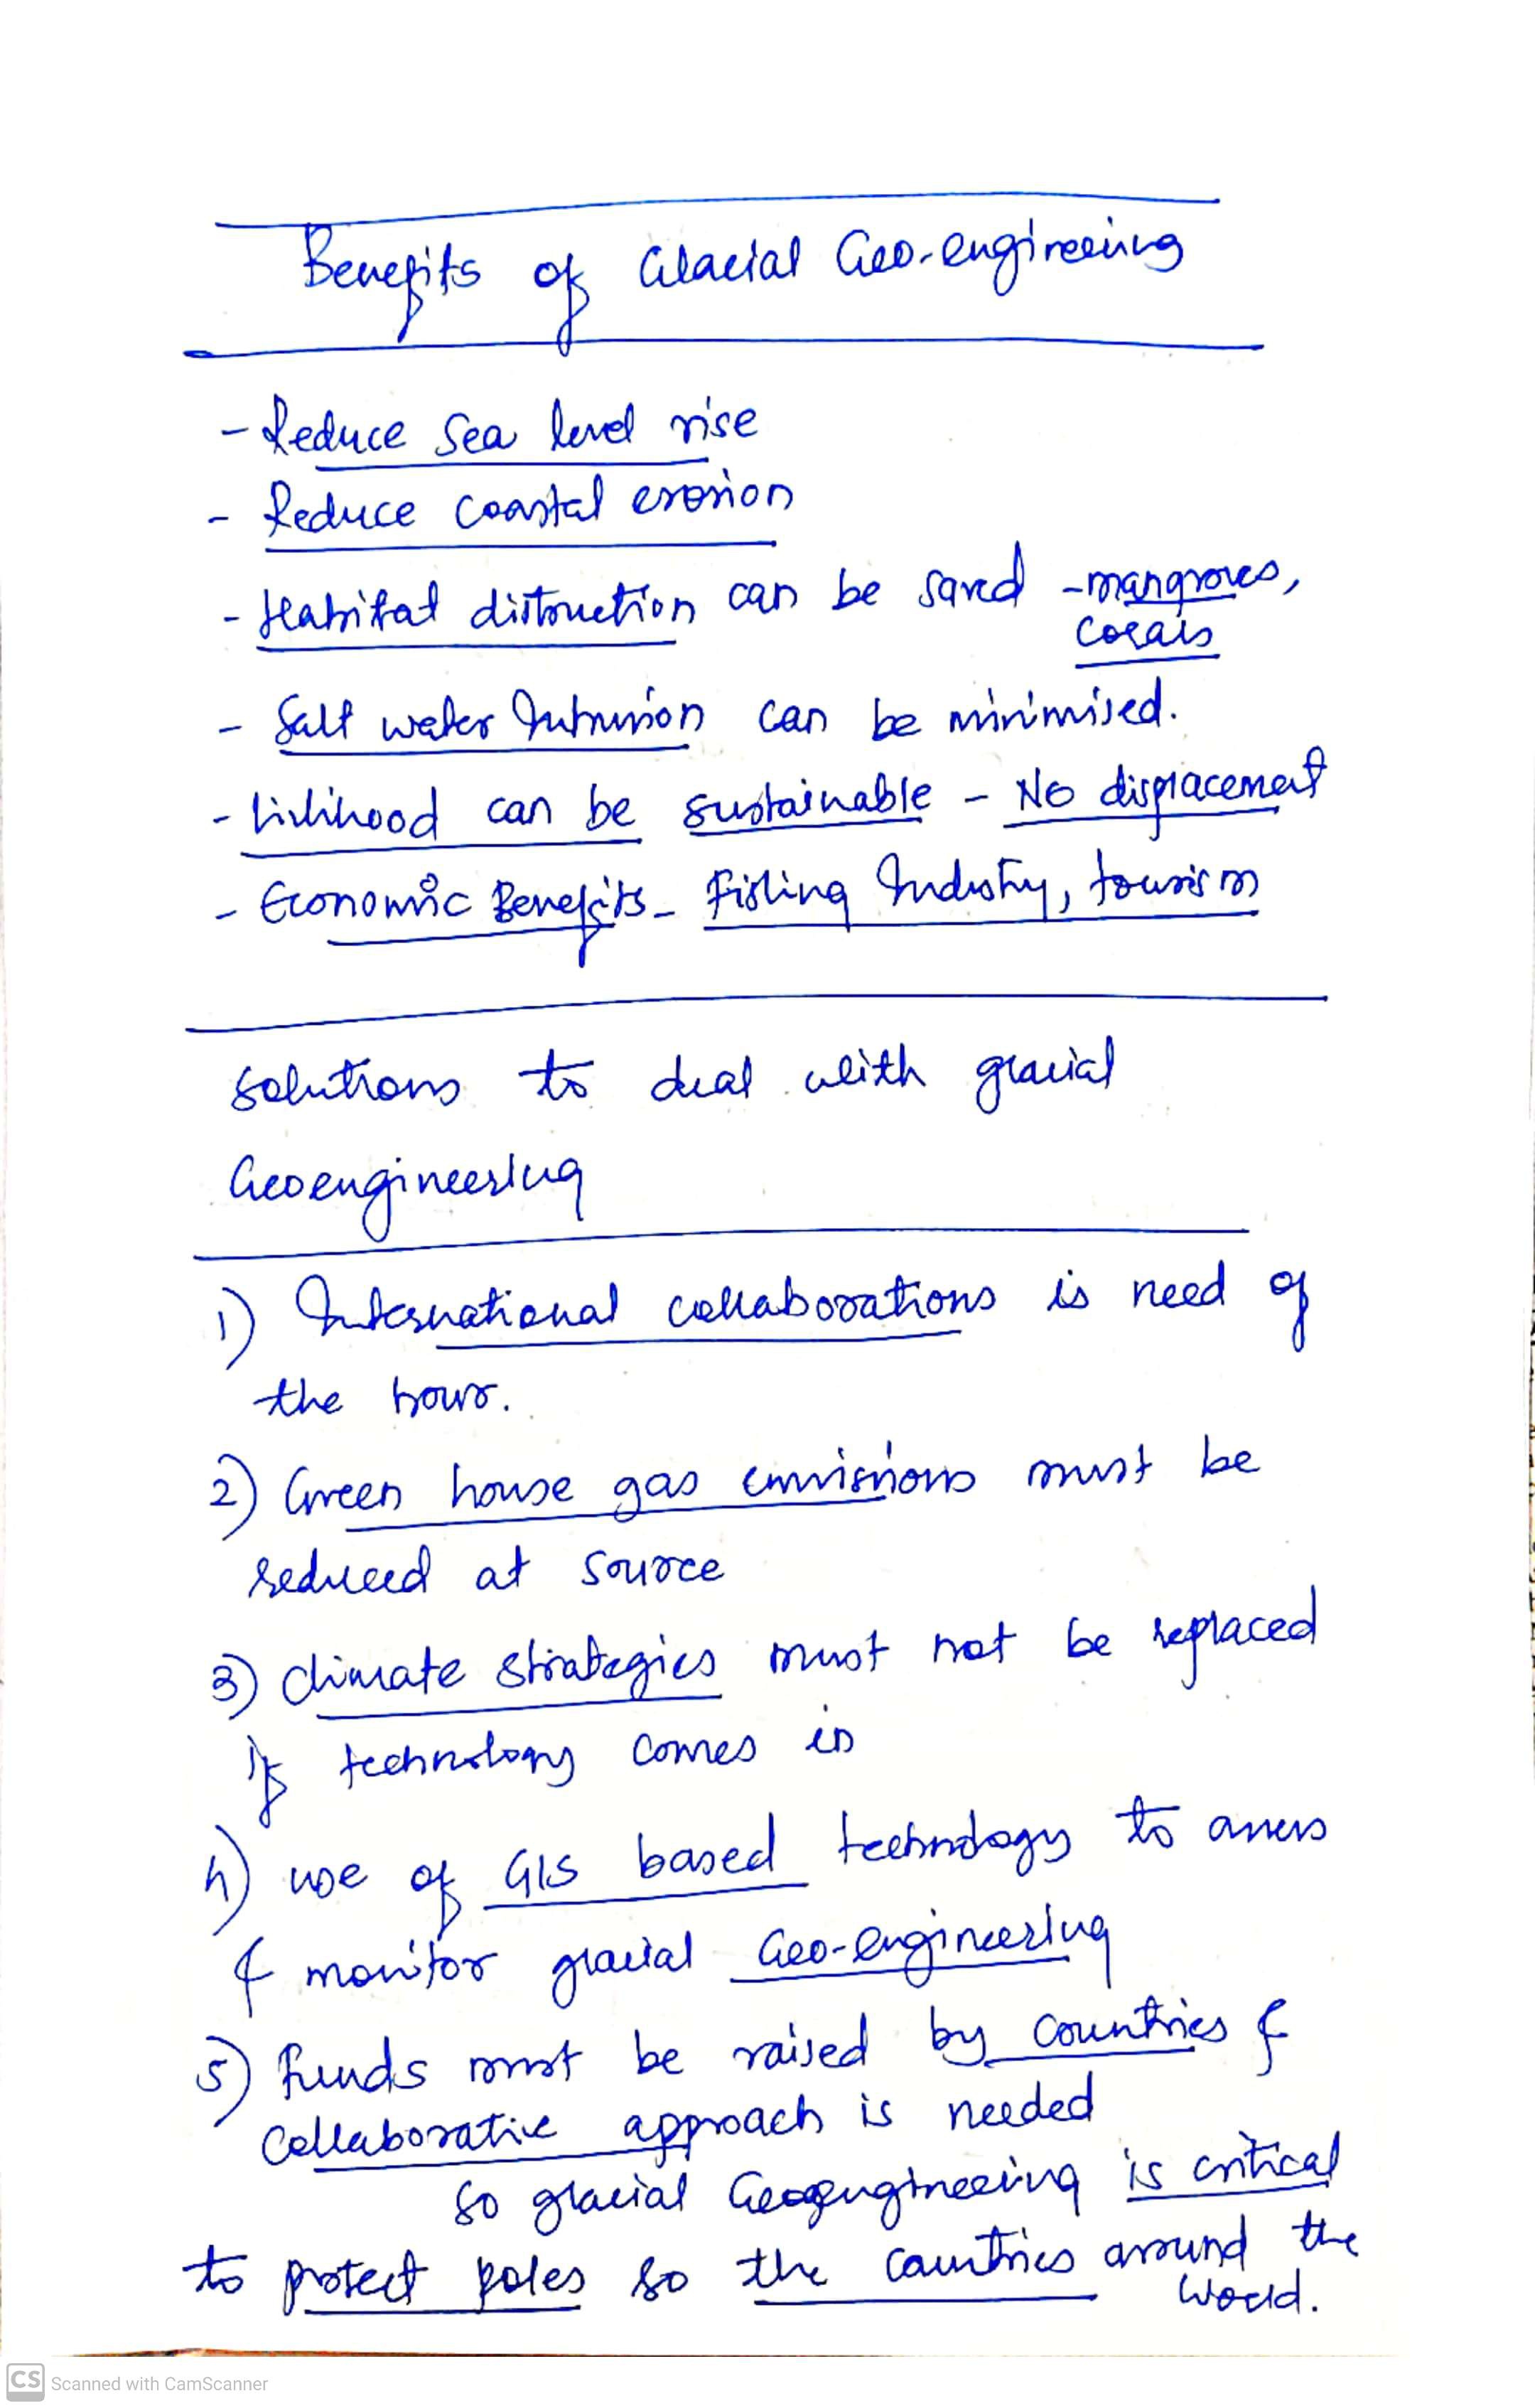 Benefits of Glacial Geo-engineering
- Reduce Sea level rise
- Reduce coastal erosion
- Habitat distruction can be saved - mangroves,
corals
- Salt water Intrusion can be minimised.
- Livlihood can be sustainable - No displacement
- Economic Benefits - Fishing Industry, tourism
Solutions to deal with glacial
Geoengineering
1) International collaborations is need of
the hour.
2) Green house gas emissions must be
reduced at source
3) Climate strategies must not be replaced
if technology comes in
4) use of GIS based technology to assess
& monitor glacial Geo-engineering
5) Funds must be raised by countries &
Collaborative approach is needed
So glacial Geoengineering is critical
to protect poles so the countries around the
World.
CS Scanned with CamScanner